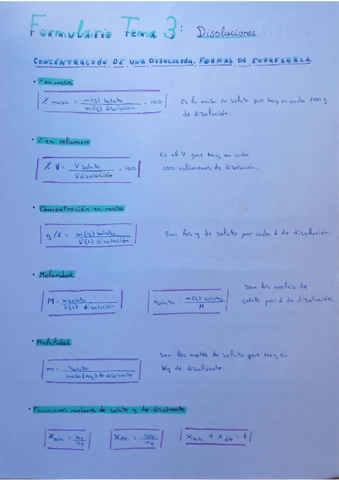 Formulario Tema 3: Disoluciones
CONCENTRACIÓN DE UNA DISOLUCIÓN. FORMAS DE EXPRESARLA
· % en masa
% masa = m(g) soluto / m(g) disolución · 100
Es la masa de soluto que hay en cada 100 g
de disolución.
· % en volumen
% V = V soluto / V disolución · 100
Es el V que hay en cada
100 volúmenes de disolución.
· Concentración en masa
g/L = m(g) soluto / V(L) disolución
Son los g de soluto por cada L de disolución.
· Molaridad
M = n soluto / V(L) disolución
n soluto = m(g) soluto / M
Son los moles de
soluto por L de disolución
· Molalidad
m = n soluto / masa (kg) de disolvente
Son los moles de soluto que hay en
kg de disolvente.
· Fracciones molares de soluto y de disolvente